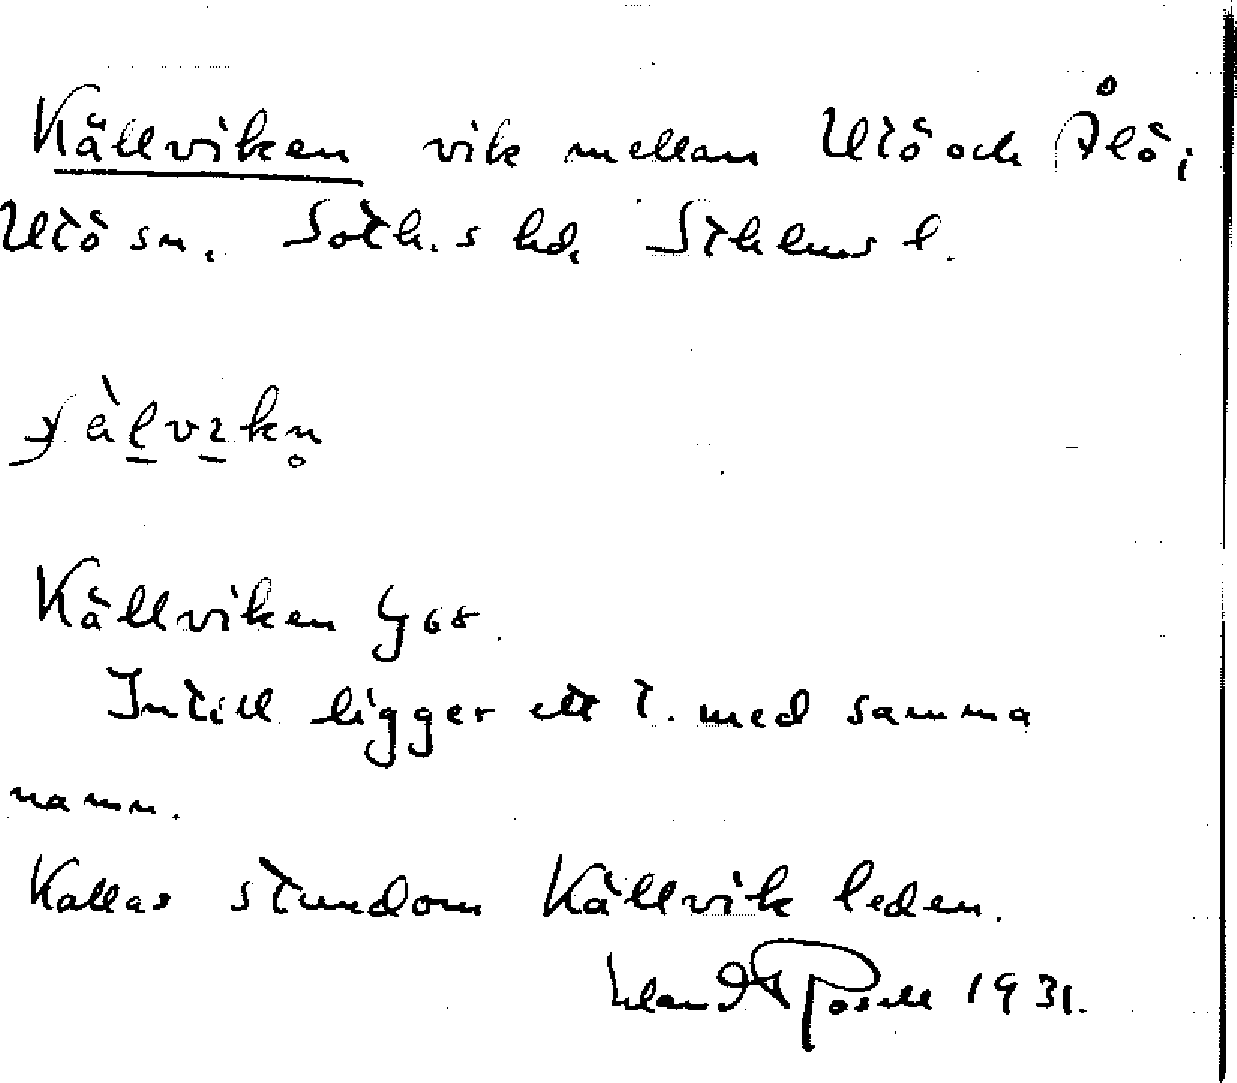 Källviken vik mellan Utö och Ålö i
Utö sn. Soth.s hd. Sthlms l.
Källviken G68.
Intill ligger ett t. med samma
namn.
Kallas stundom Källvik leden.
Rosell 1931.